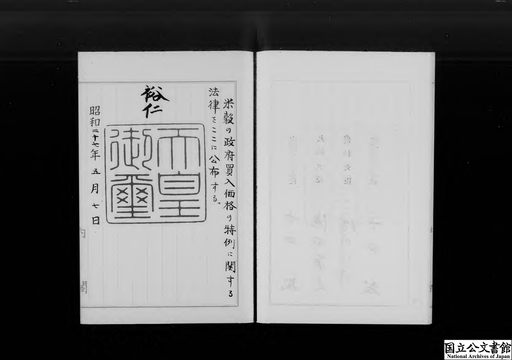 米穀の政府買入価格の特例に関する
法律をここに公布する。
裕仁
天皇
御璽
昭和二十七年五月七日
内閣
国立公文書館
National Archives of Japan